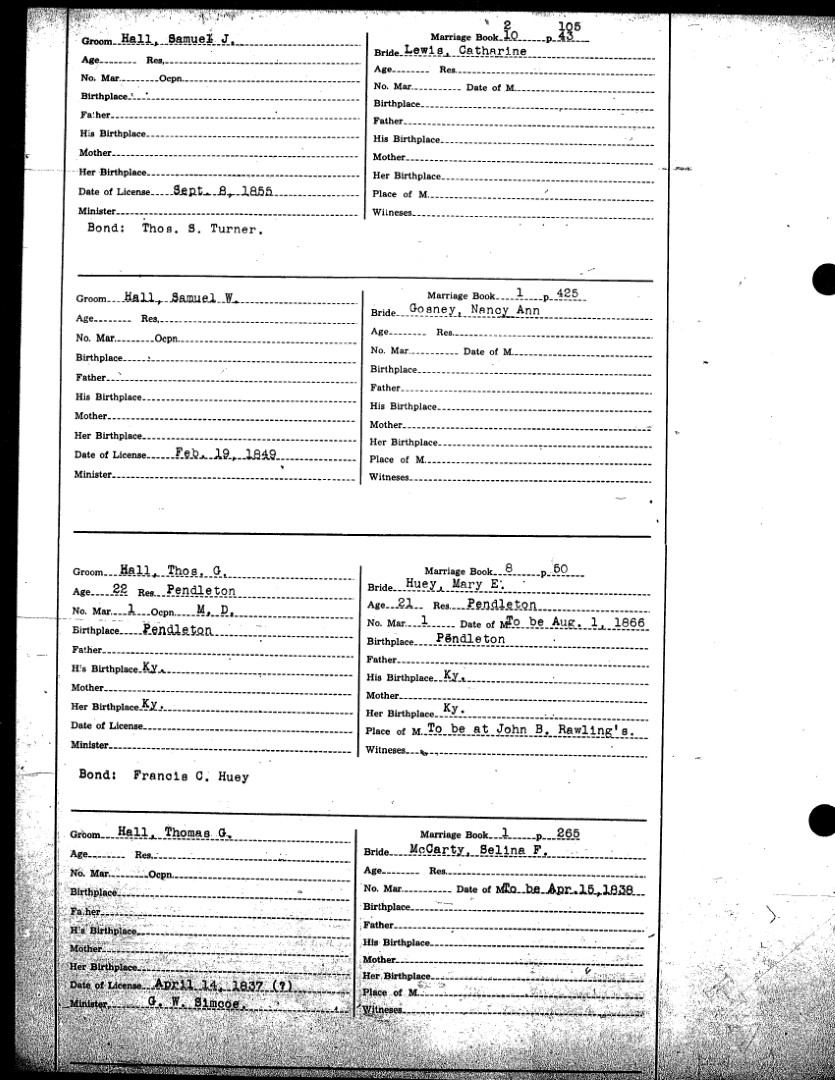 2 105
Groom Hall, Samuel J. Marriage Book 10 p. 43
Bride Lewis, Catharine
Age Res.
Age Res.
No. Mar. Ocpn.
No. Mar. Date of M.
Birthplace
Birthplace
Father
Father
His Birthplace
His Birthplace
Mother
Mother
Her Birthplace
Her Birthplace
Date of License Sept. 8, 1855
Place of M.
Minister
Witneses
Bond: Thos. S. Turner.
Groom Hall, Samuel W. Marriage Book 1 p. 425
Bride Gosney, Nancy Ann
Age Res.
Age Res.
No. Mar. Ocpn.
No. Mar. Date of M.
Birthplace
Birthplace
Father
Father
His Birthplace
His Birthplace
Mother
Mother
Her Birthplace
Her Birthplace
Date of License Feb. 19, 1849
Place of M.
Minister
Witneses
Groom Hall, Thos. G. Marriage Book 8 p. 50
Bride Huey, Mary E.
Age 22 Res. Pendleton
Age 21 Res. Pendleton
No. Mar. 1 Ocpn. M. D.
No. Mar. 1 Date of M. To be Aug. 1, 1866
Birthplace Pendleton
Birthplace Pendleton
Father
Father
H's Birthplace Ky.
His Birthplace Ky.
Mother
Mother
Her Birthplace Ky.
Her Birthplace Ky.
Date of License
Place of M. To be at John B. Rawling's.
Minister
Witneses
Bond: Francis C. Huey
Groom Hall, Thomas G. Marriage Book 1 p. 265
Bride McCarty, Selina F.
Age Res.
Age Res.
No. Mar. Ocpn.
No. Mar. Date of M. To be Apr.15,1838
Birthplace
Birthplace
Father
Father
H's Birthplace
His Birthplace
Mother
Mother
Her Birthplace
Her Birthplace
Date of License April 14, 1837 (?)
Place of M.
Minister G. W. Simcoe.
Witneses